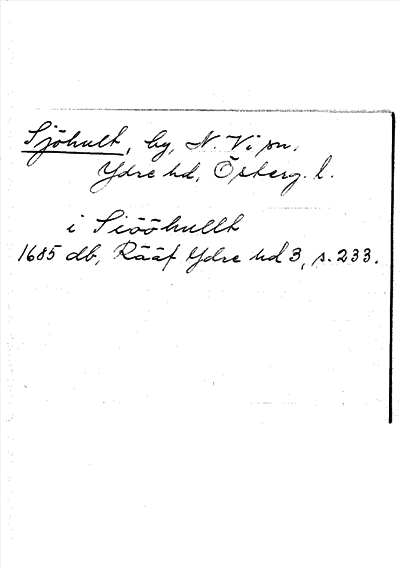 Sjöhult, by, N. Vi sn,
Ydre hd, Österg. l.
i Siööhullt
1685 db, Rääf Ydre hd 3, s. 233.